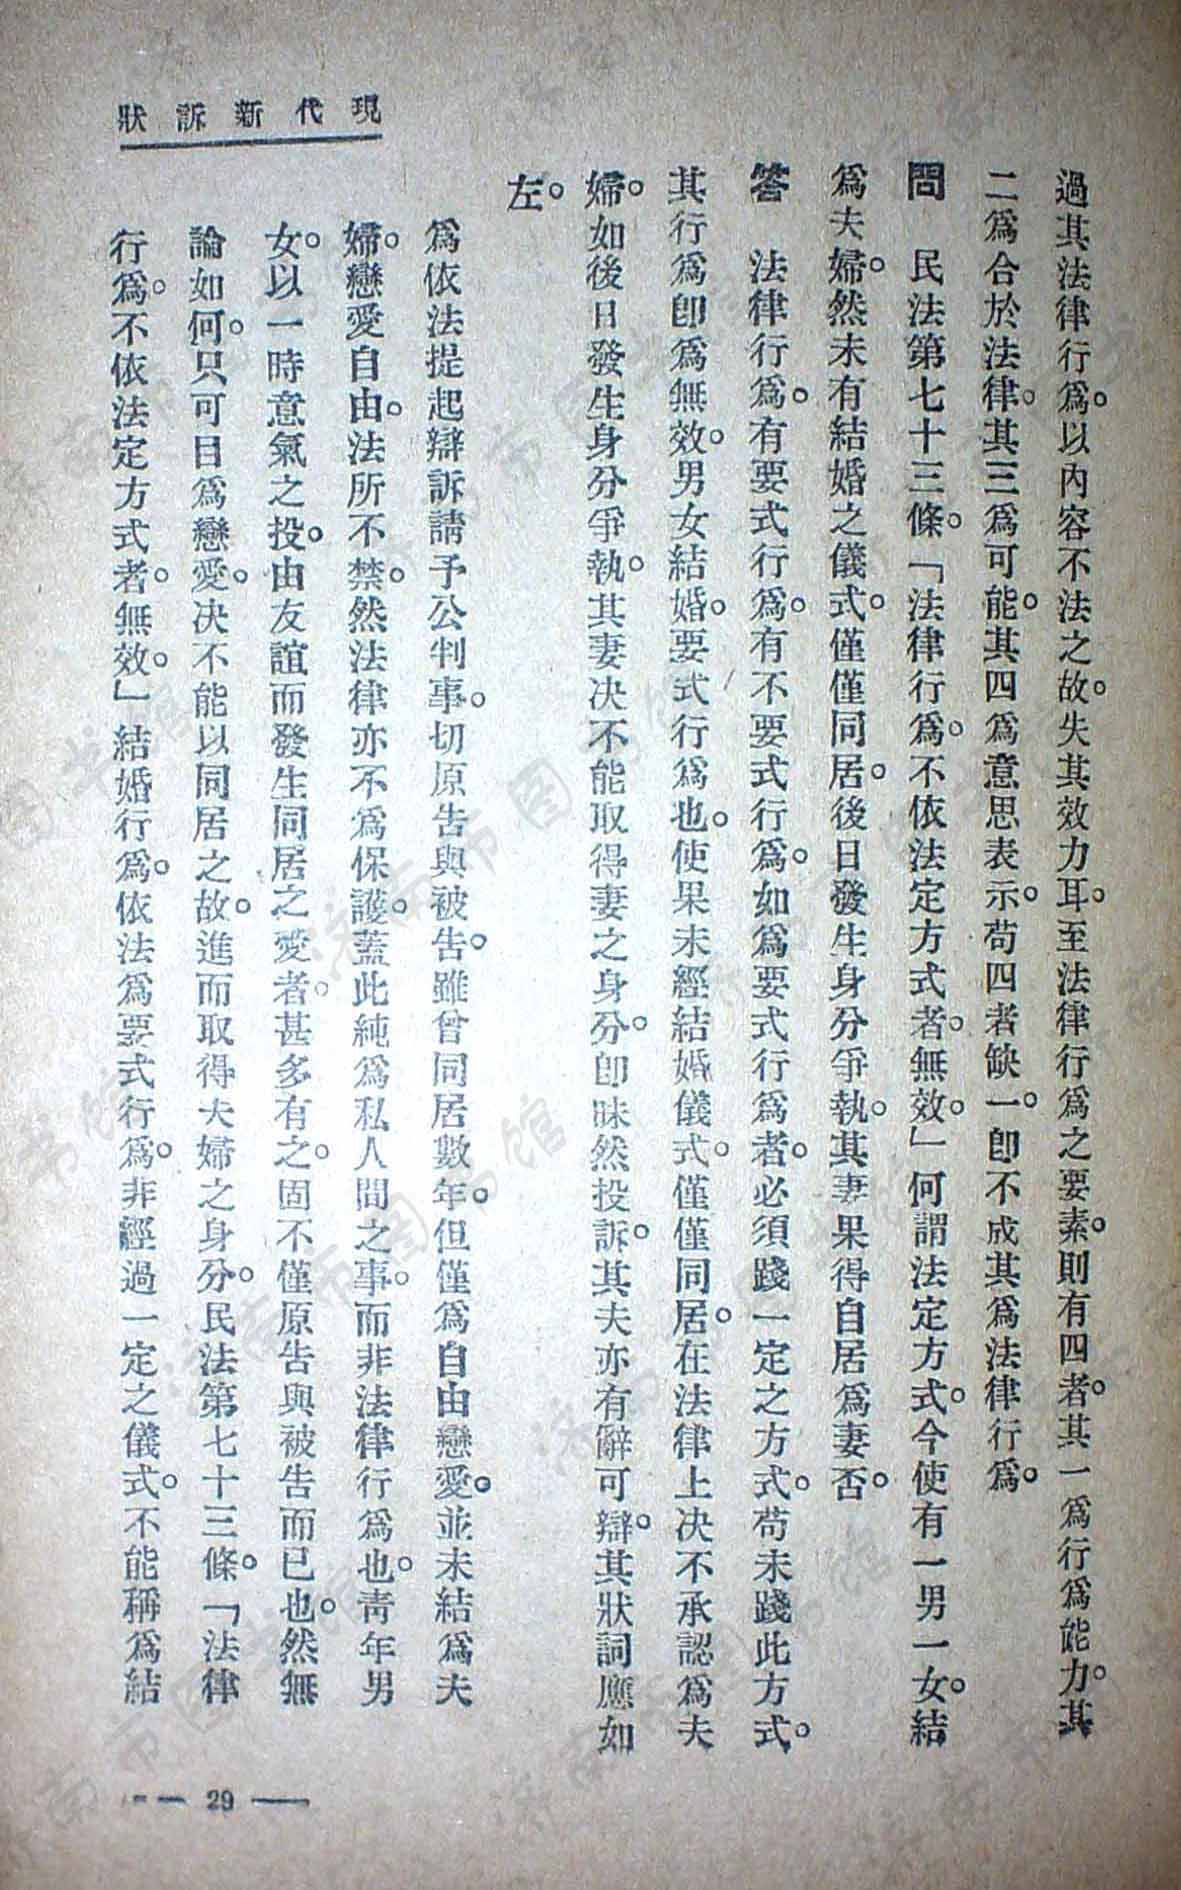 現代新訴狀
過其法律行爲。以內容不法之故。失其效力耳。至法律行爲之要素。則有四者。其一爲行爲能力。其
二爲合於法律。其三爲可能。其四爲意思表示。苟四者缺一。卽不成其爲法律行爲。
問　民法第七十三條。「法律行爲。不依法定方式者。無效。」何謂法定方式。今使有一男一女。結
爲夫婦。然未有結婚之儀式。僅僅同居。後日發生身分爭執。其妻果得自居爲妻否。
答　法律行爲。有要式行爲。有不要式行爲。如爲要式行爲者。必須踐一定之方式。苟未踐此方式。
其行爲卽爲無效。男女結婚。要式行爲也。使果未經結婚儀式。僅僅同居。在法律上決不承認爲夫
婦。如後日發生身分爭執。其妻決不能取得妻之身分。卽昧然投訴。其夫亦有辭可辯。其狀詞應如
左。
爲依法提起辯訴請予公判事。切原告與被告。雖曾同居數年。但僅爲自由戀愛。並未結爲夫
婦。戀愛自由。法所不禁。然法律亦不爲保護。蓋此純爲私人間之事。而非法律行爲也。靑年男
女。以一時意氣之投。由友誼而發生同居之愛者。甚多有之。固不僅原告與被告而已也。然無
論如何。只可目爲戀愛。決不能以同居之故。進而取得夫婦之身分。民法第七十三條。「法律
行爲。不依法定方式者。無效。」結婚行爲。依法爲要式行爲。非經過一定之儀式。不能稱爲結
29
济南市图书馆